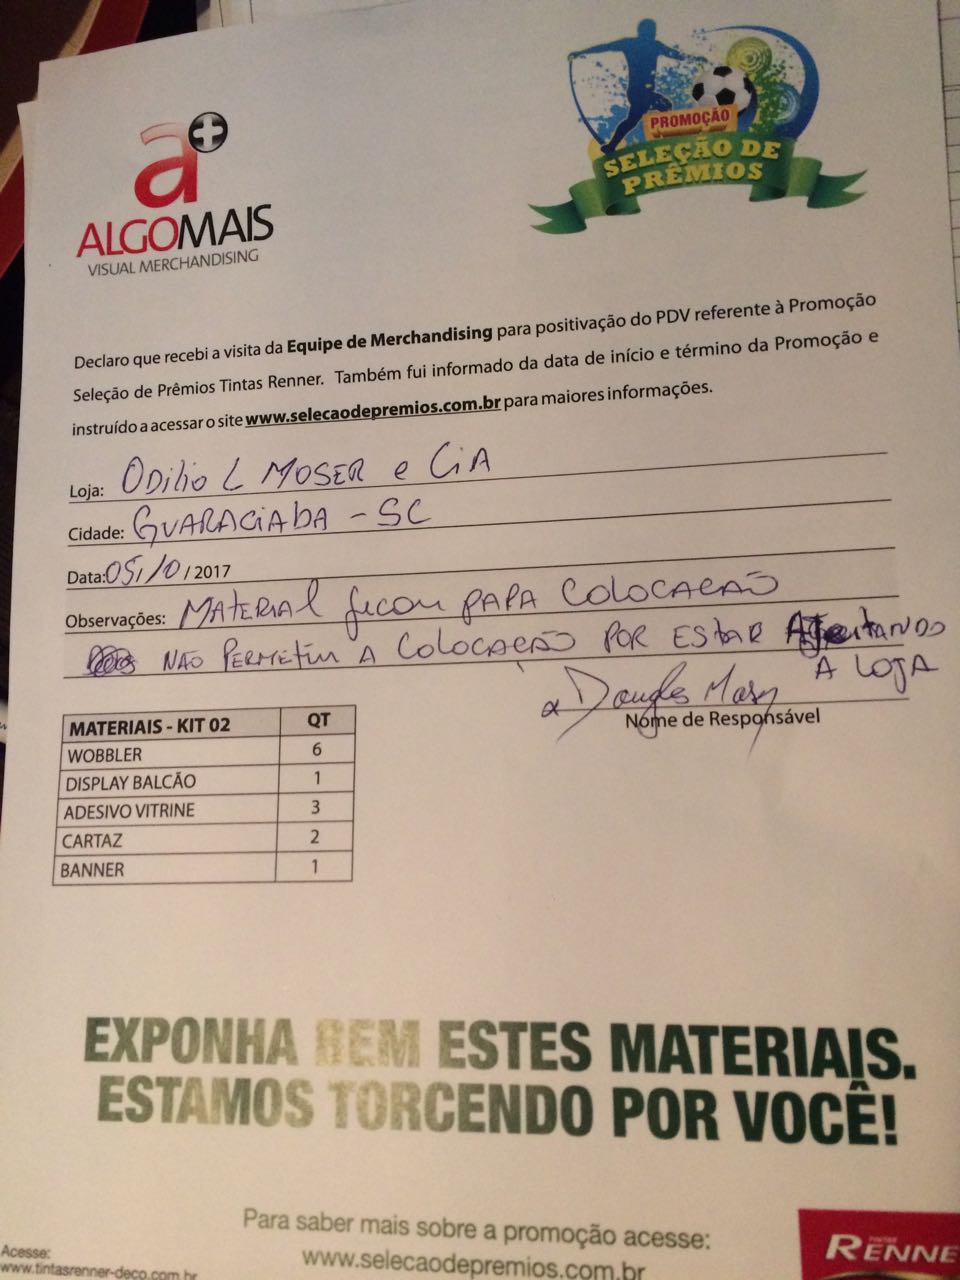 a+
ALGOMAIS
VISUAL MERCHANDISING
PROMOÇÃO
SELEÇÃO DE
PRÊMIOS
Declaro que recebi a visita da Equipe de Merchandising para positivação do PDV referente à Promoção
Seleção de Prêmios Tintas Renner. Também fui informado da data de início e término da Promoção e
instruído a acessar o site www.selecaodepremios.com.br para maiores informações.
Loja: Odilio L MOSER e CiA
Cidade: GUARACIABA - SC
Data: 05/10/2017
Observações: MATERIAL ficou PARA COLOCACÃO
NÃO PERMETIU A COLOCACÃO POR ESTAR
A LOJA
Douglas Moser
Nome de Responsável
MATERIAIS - KIT 02 QT
WOBBLER 6
DISPLAY BALCÃO 1
ADESIVO VITRINE 3
CARTAZ 2
BANNER 1
EXPONHA BEM ESTES MATERIAIS.
ESTAMOS TORCENDO POR VOCÊ!
Para saber mais sobre a promoção acesse:
www.selecaodepremios.com.br
Acesse:
www.tintasrenner-deco.com.br
TINTAS
RENNE